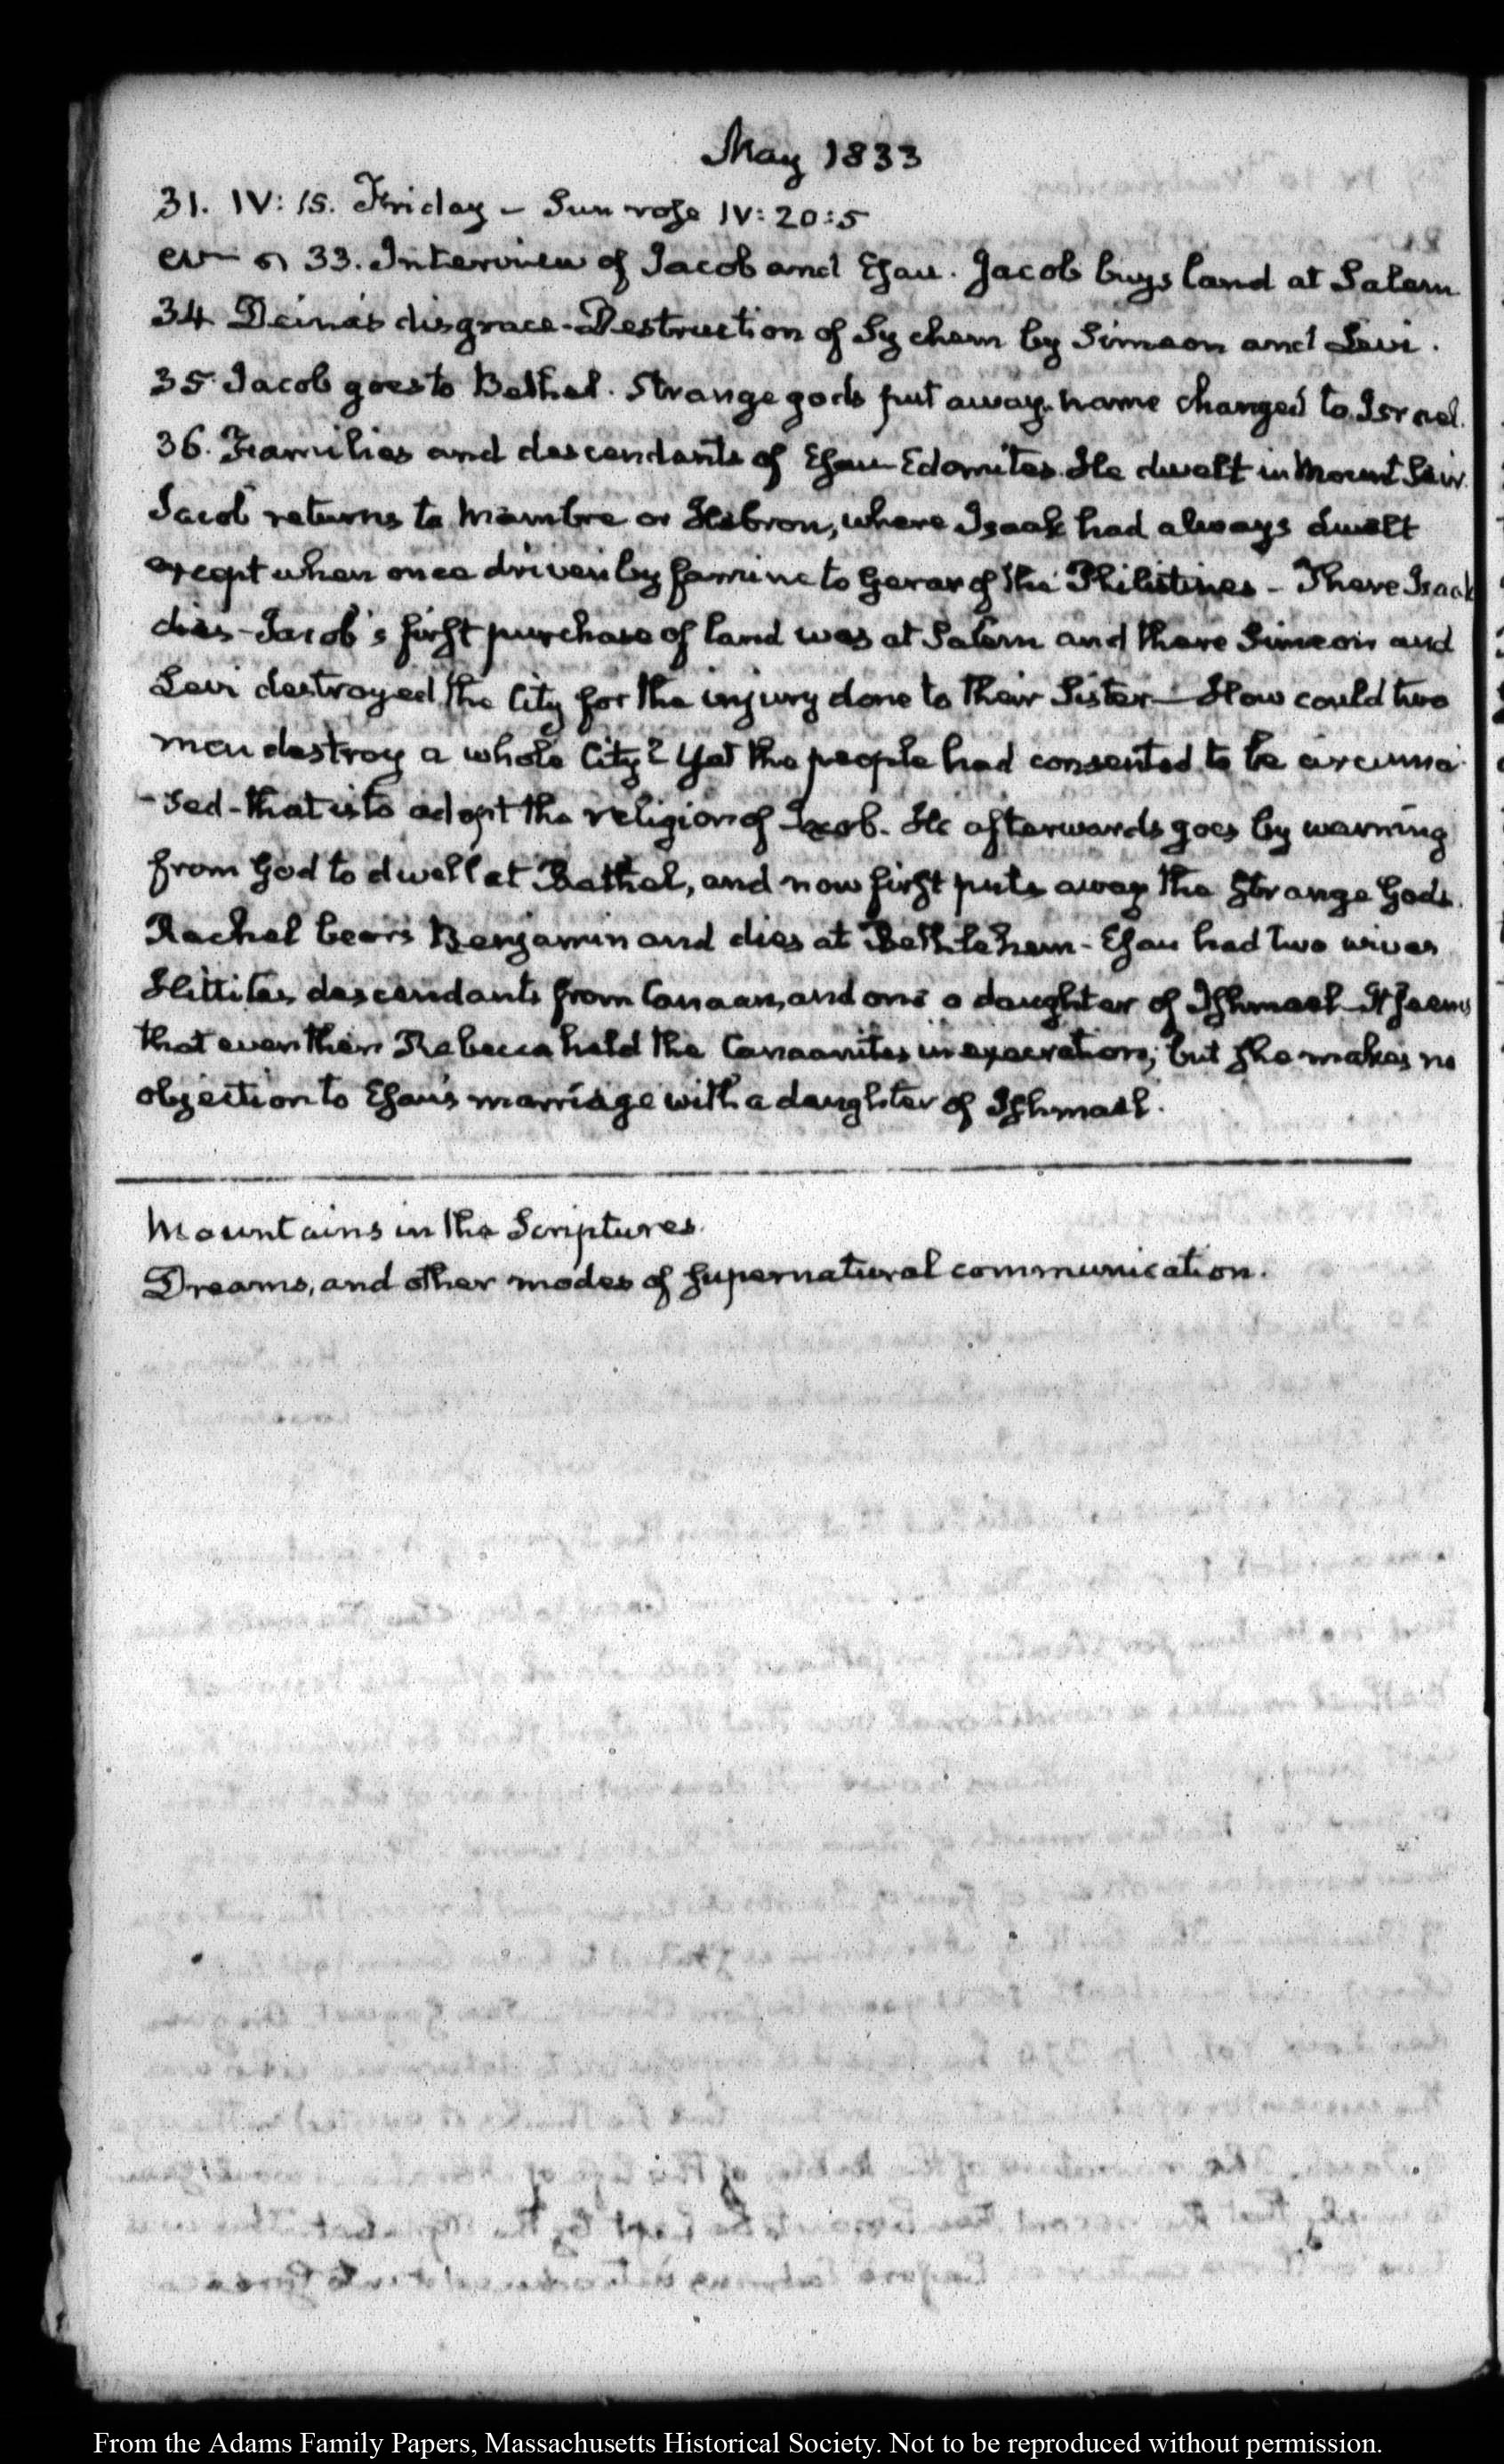 May 1833
31. IV: 15. Friday – Sun rose IV: 20:5
33. Interview of Jacob and Esau. Jacob buys land at Salem
34 Deina's disgrace – Destruction of Sychem by Simeon and Levi.
35 Jacob goes to Bethel. Strange gods put away. name changed to Israel.
36. Families and descendants of Esau Edomites. He dwelt in Mount Seir.
Jacob returns to Mambre or Hebron, where Isaak had always dwelt
except when once driven by famine to Gerar of the Philistines – There Isaak
dies – Jacob's first purchase of land was at Salem and there Simeon and
Levi destroyed the City for the injury done to their Sister – How could two
men destroy a whole City? Yet the people had consented to be circumci
-sed – that is to adopt the religion of Jacob. He afterwards goes by warning
from God to dwell at Bethel, and now first puts away the strange Gods.
Rachel bears Benjamin and dies at Bethlehem – Esau had two wives
Hittites, descendants from Canaan, and one a daughter of Ishmael – It seems
that even then Rebecca held the Canaanites in execration; but she makes no
objection to Esau's marriage with a daughter of Ishmael.
Mountains in the Scriptures.
Dreams, and other modes of supernatural communication.
From the Adams Family Papers, Massachusetts Historical Society. Not to be reproduced without permission.